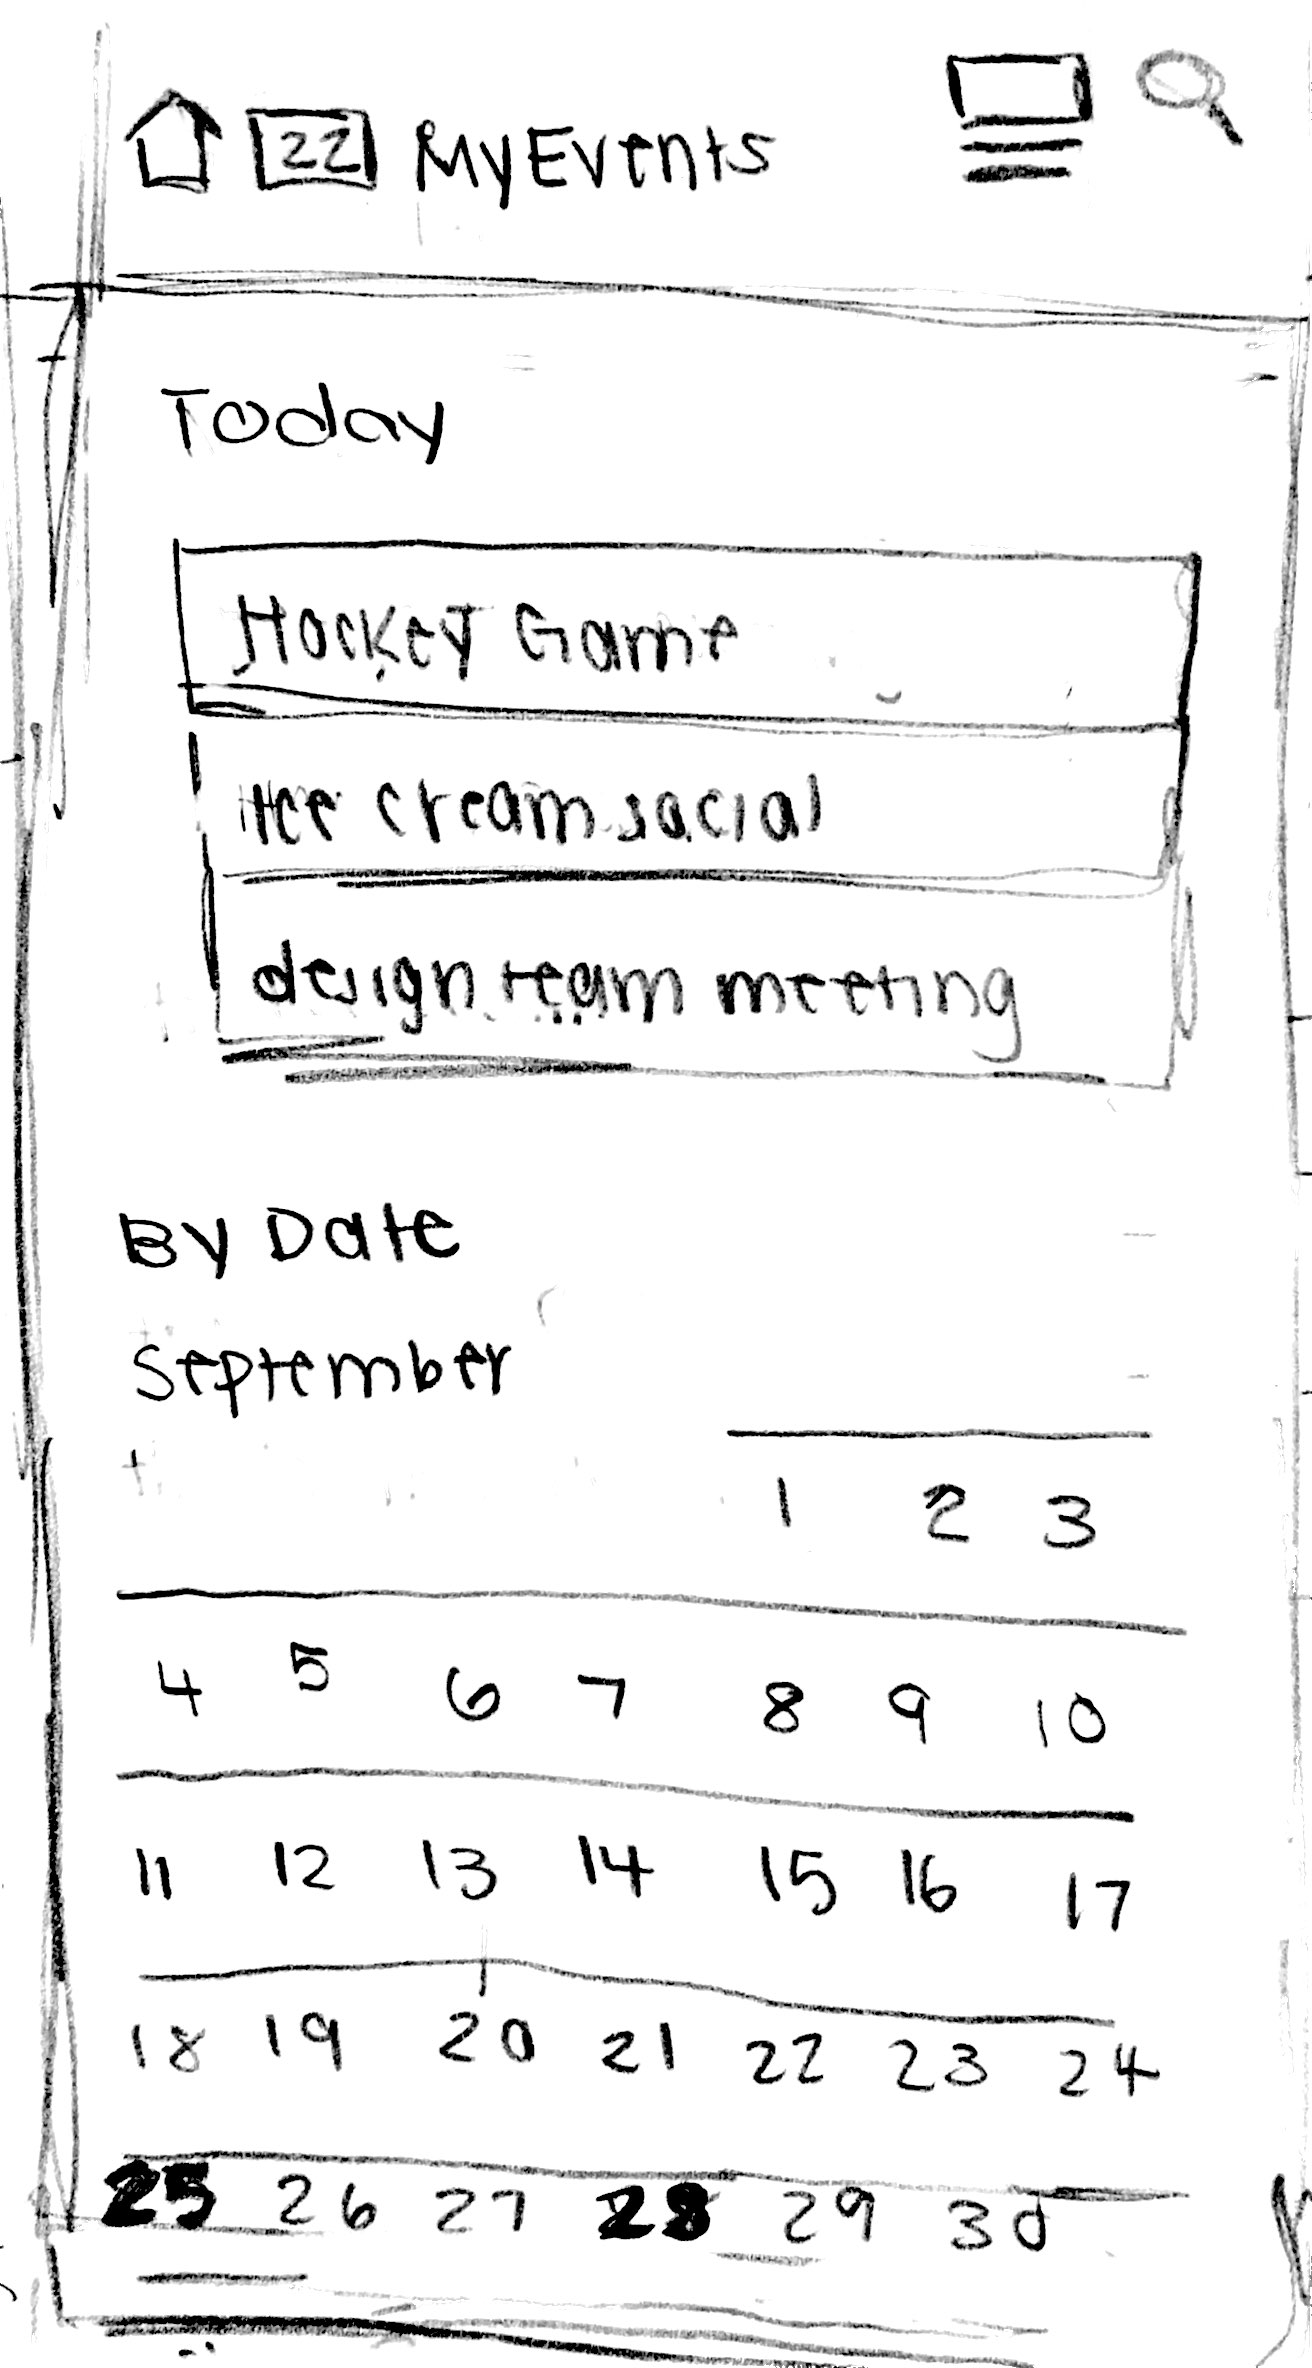 22 MyEvents
Today
Hockey Game
Ice cream social
design team meeting
By Date
September
1 2 3
4 5 6 7 8 9 10
11 12 13 14 15 16 17
18 19 20 21 22 23 24
25 26 27 28 29 30